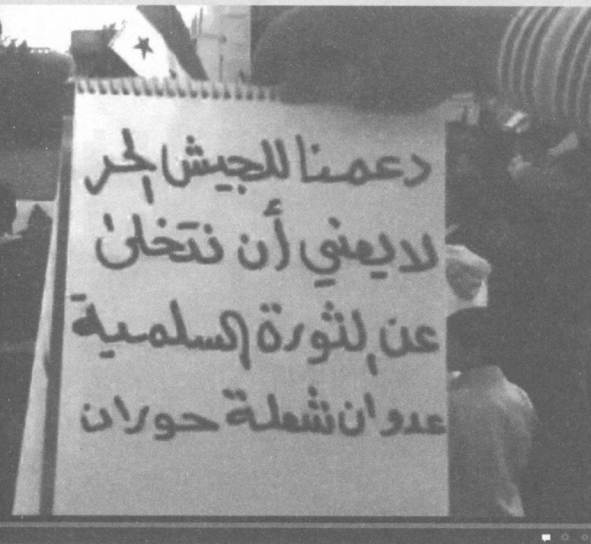 دعمنا للجيش الحر
لا يعني أن نتخلى
عن الثورة السلمية
عدوان شعلة حوران